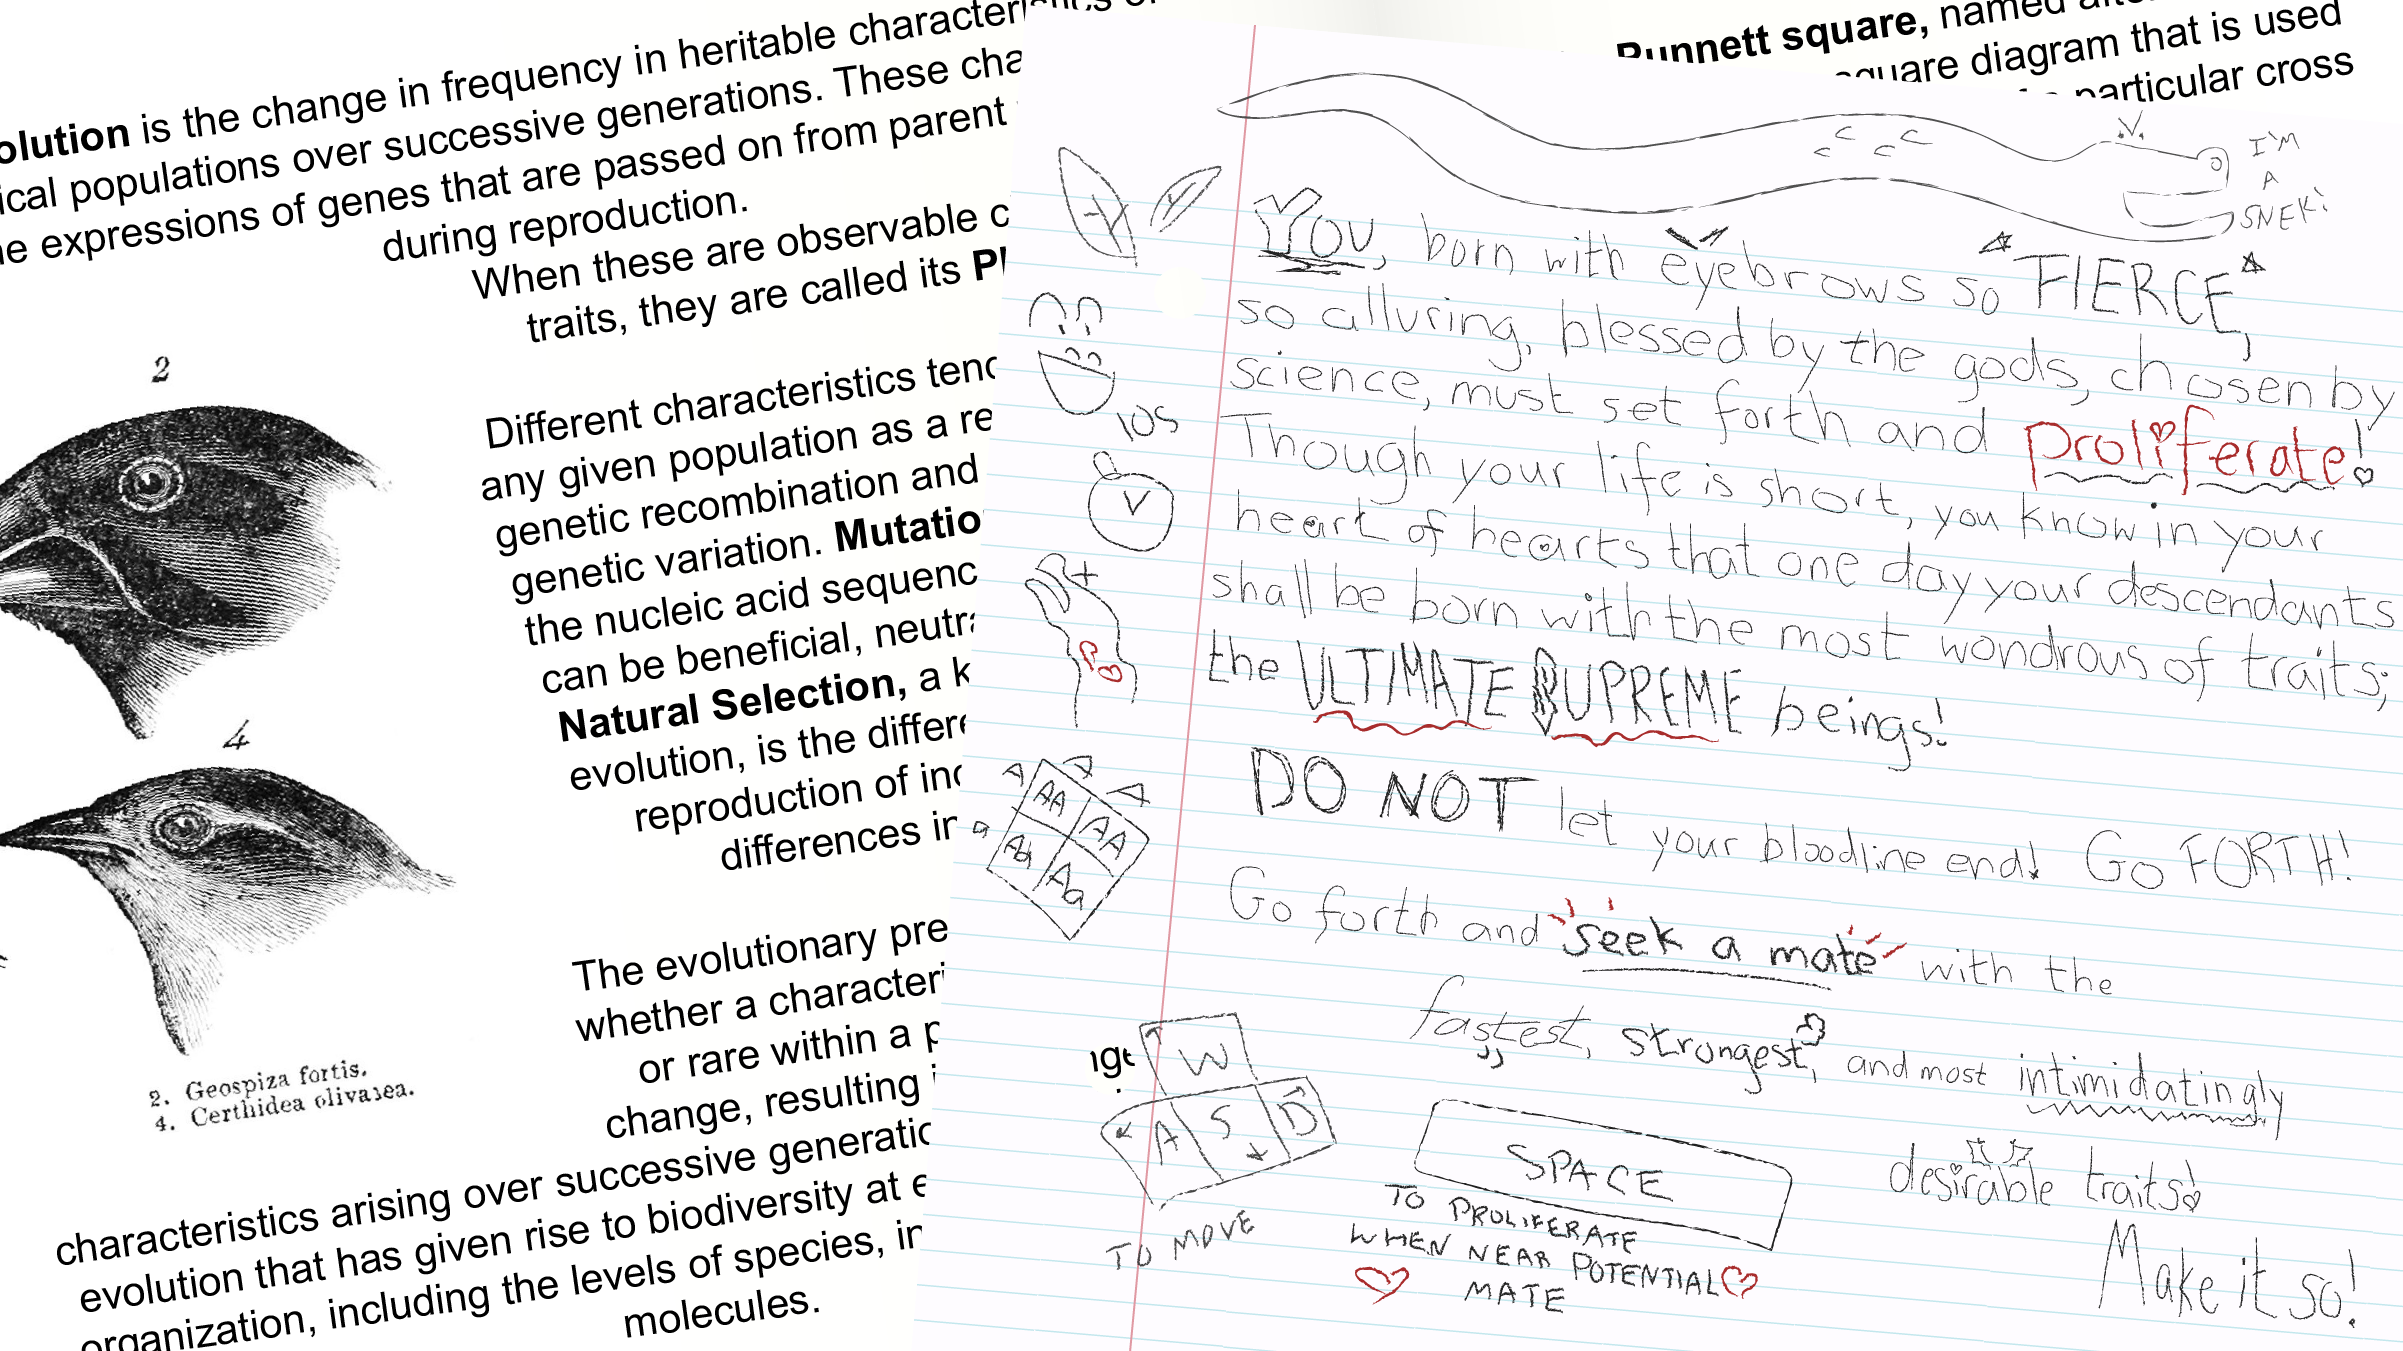 olution is the change in frequency in heritable
ical populations over successive generations. These
he expressions of genes that are passed on from parent
during reproduction.
When these are observable
traits, they are called its
Different characteristics
any given population as a
genetic recombination and
genetic variation.
the nucleic acid
can be beneficial,
Natural Selection, a
evolution, is the
reproduction of
differences
The evolutionary
whether a
or rare within a
change, resulting
characteristics arising over successive
evolution that has given rise to biodiversity at
organization, including the levels of species, in
molecules.
2
4
2. Geospiza fortis.
4. Certhidea olivacea.
Punnett square, named
square diagram that is used
particular cross
I'M
A
SNEK!
YOU, born with eyebrows so FIERCE,
so alluring, blessed by the gods, chosen by
science, must set forth and proliferate!
Though your life is short, you know in your
heart of hearts that one day your descendants
shall be born with the most wondrous of traits;
the ULTIMATE SUPREME beings!
DO NOT let your bloodline end! Go FORTH!
Go forth and seek a mate with the
fastest, strongest, and most intimidatingly
desirable traits!
Make it so!
A A
A AA AA
a Aa Aa
W
A S D
TO MOVE
SPACE
TO PROLIFERATE
WHEN NEAR POTENTIAL
MATE